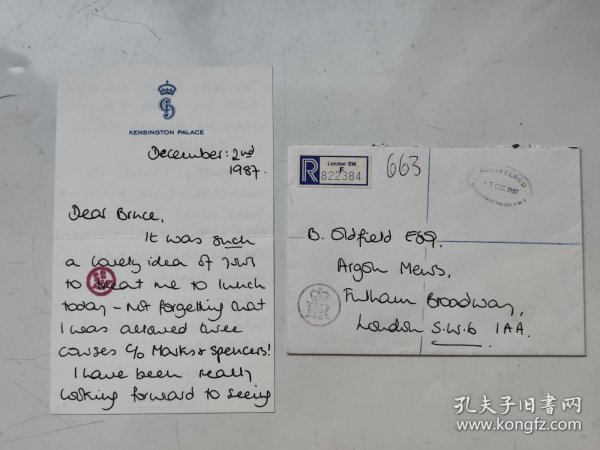 KENSINGTON PALACE
December: 2nd
1987.
Dear Bruce,
It was such
a lovely idea of yours
to treat me to lunch
today - not forgetting that
I was allowed three
courses c/o Marks & Spencers!
I have been really
looking forward to seeing
R
London SW.
F
822384
663
REGISTERED
DEC 1987
B. Oldfield Esq.
Argon Mews,
Fulham Broadway,
London S.W.6 1AA.
孔夫子旧书网
www.kongfz.com